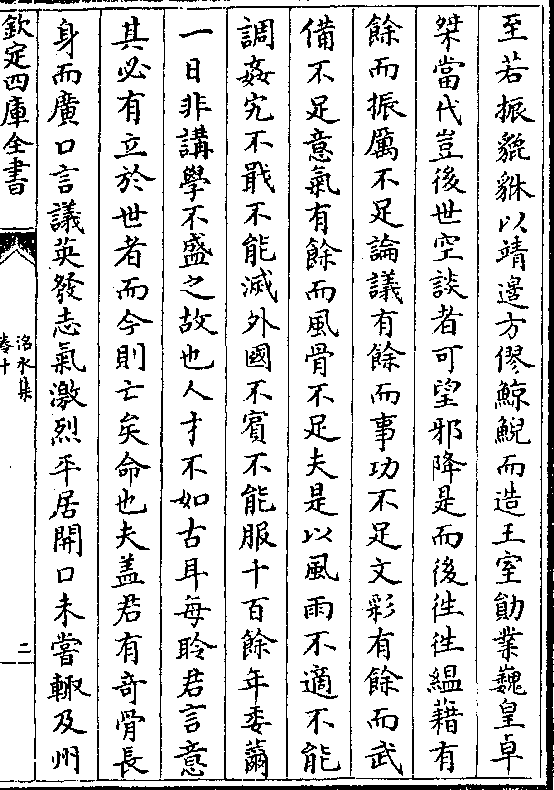 至若振貔貅以靖邊方僇鯨鯢而造王室勛業巍皇卓
桀當代豈後世空談者可望邪降是而後徃徃緼藉有
餘而振厲不足論議有餘而事功不足文彩有餘而武
備不足意氣有餘而風骨不足夫是以風雨不適不能
調姦宄不戢不能滅外國不賓不能服十百餘年委薾
一日非講學不盛之故也人才不如古耳每聆君言意
其必有立於世者而今則亡矣命也夫盖君有奇骨長
身而廣口言議英發志氣激烈平居開口未嘗輙及州
欽定四庫全書
洺水集
卷十
二